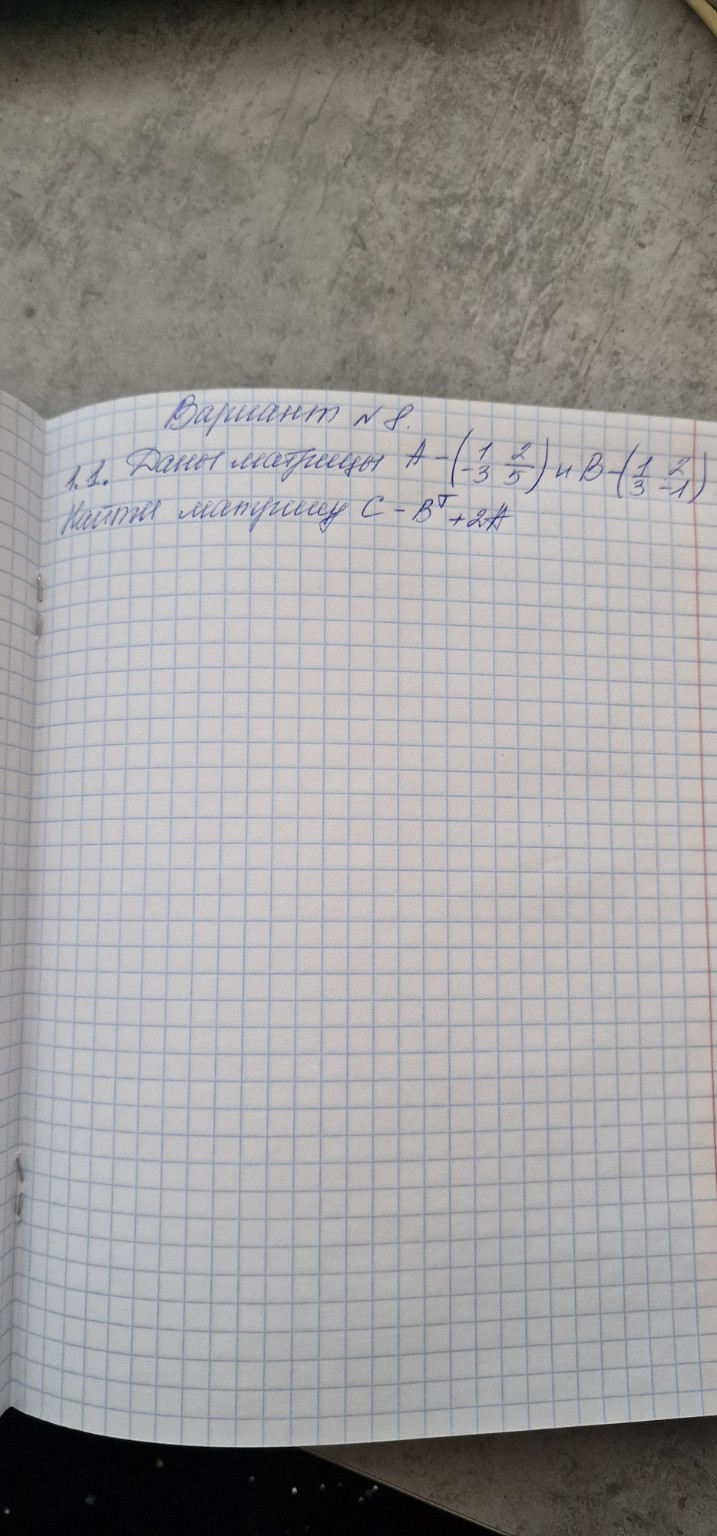 Вариант №8.
1.1. Даны матрицы A - (1 2 -3 5) и B - (1 2 3 -1)
Найти матрицу C - Bᵀ + 2A